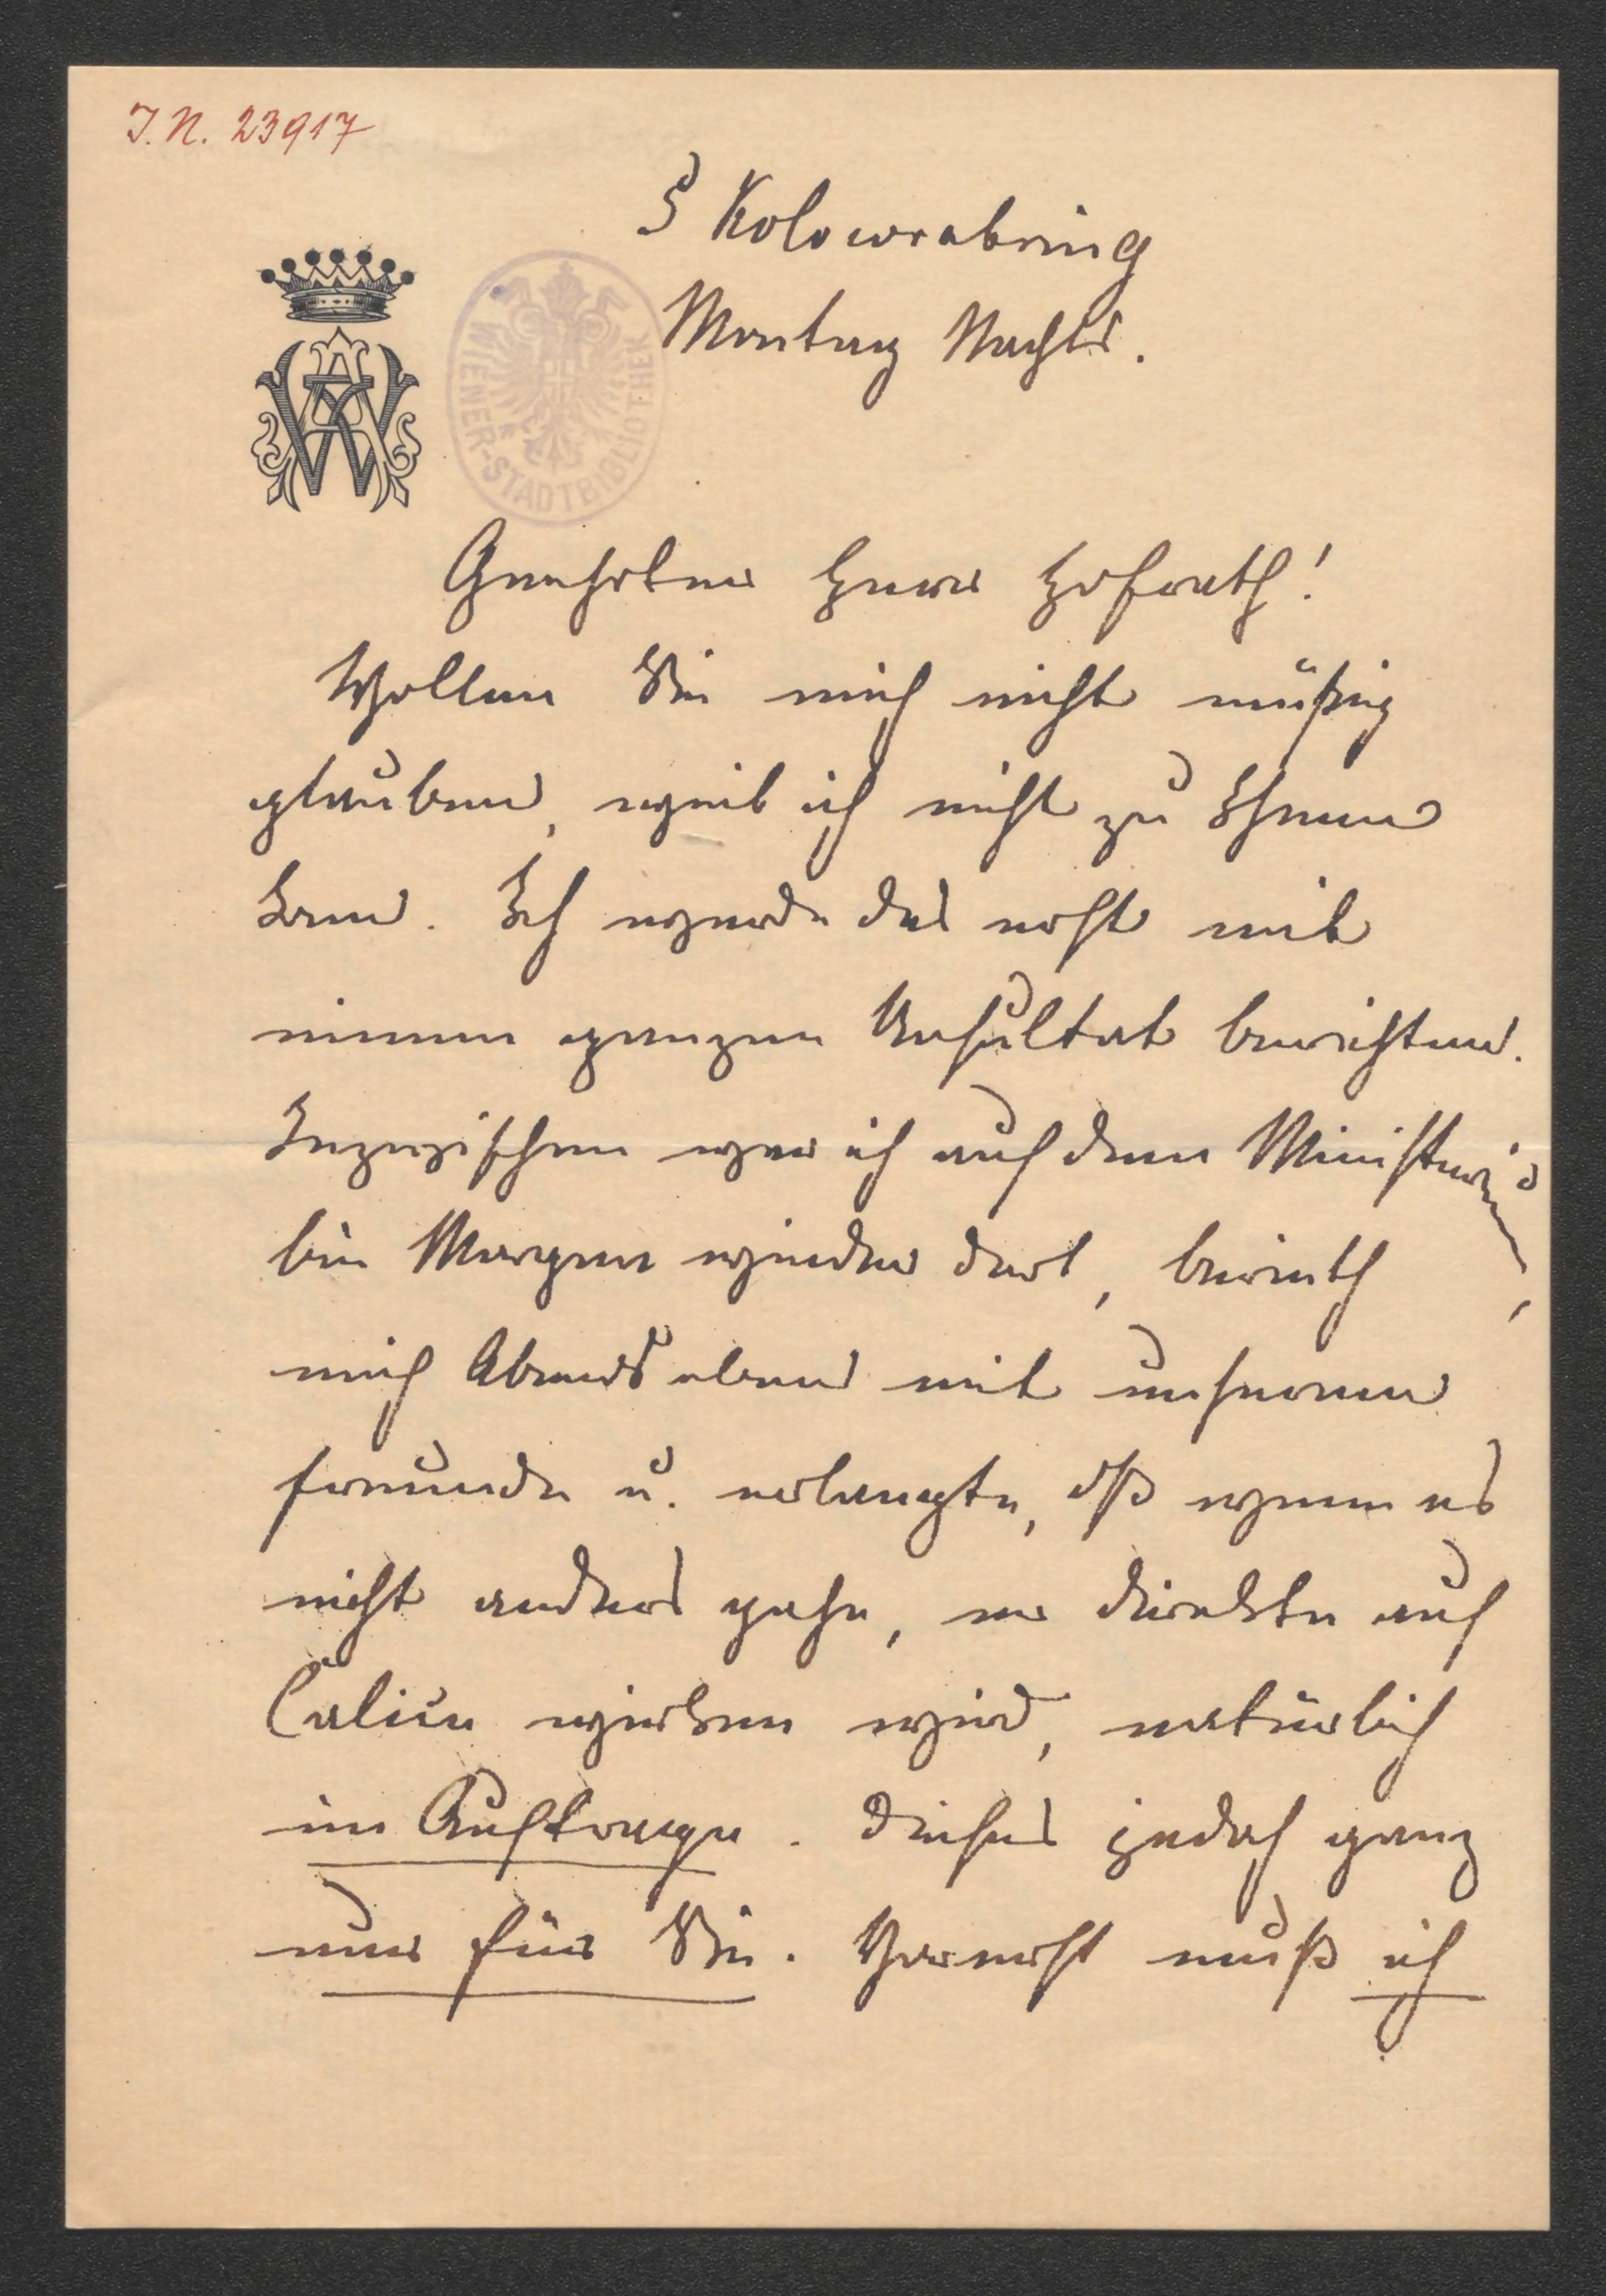 I. N. 23917
5 Kolowrabring
Montag Nachts.
WIENER-STADTBIBLIOTHEK
Geehrter Herr Hofrath!
Wollen Sie mich nicht müßig
glauben, weil ich nicht zu Ihnen
kam. Ich werde das erst mit
einem ganzen Resultat berichten.
Inzwischen war ich auf dem Ministerium,
bin Morgen wieder dort, berieth
mich Abends eben mit unserem
Freunde u. erlangte, dß wenn es
nicht anders gehe, er direkte auf
Calice wirken wird, natürlich
im Auftrage. Dieses jedoch ganz
nur für Sie. Vorerst muß ich